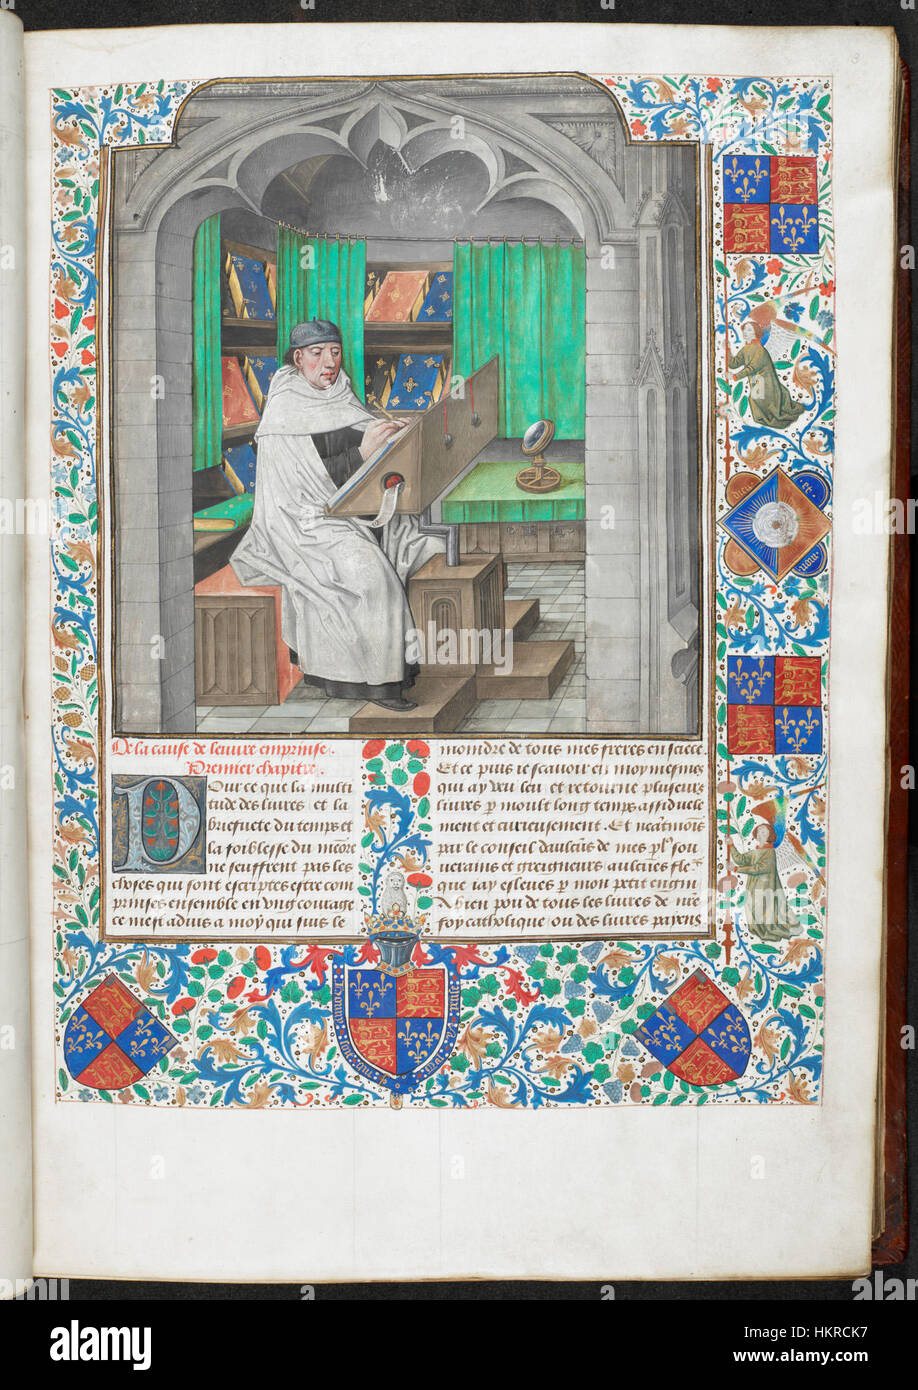 3
De la cause de leuure emprinse.
Premier chapitre.
Pour ce que la multi
tude des liures et la
briefuete du temps et
la foiblesse du memoire
ne seuffrent pas les
choses qui sont escriptes estre com
prinses ensemble en ung couraige
ce mest aduis a moy qui suis le
moindre de tous mes freres en science.
Et ce plus
qui ay veu leu et retourne pluseurs
liures par moult long temps assiduele
ment et curieusement. Et neatmois
par le conseil daulcuns de mes pl' sou
uerains et greigneurs aulcunes
que iay esleues par mon petit engin
A bien pou de tous les liures de nre
foy catholique / ou des liures payens
dieu et mon
Honny soit qui mal y pense
alamy stock photo
Image ID: HKRCK7
www.alamy.com